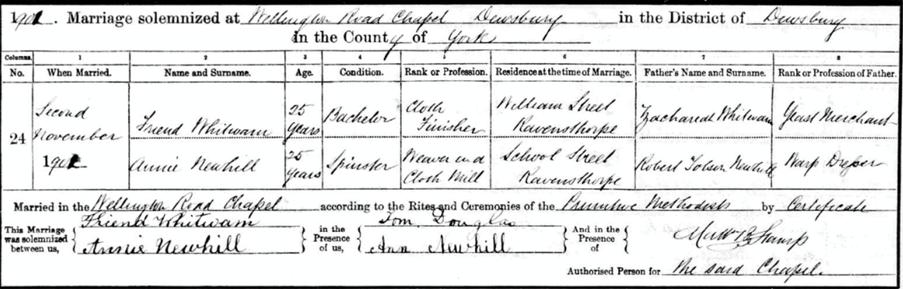 1901. Marriage solemnized at Wellington Road Chapel Dewsbury in the District of Dewsbury
in the County of York
Columns. 1 2 3 4 5 6 7 8
No. When Married. Name and Surname. Age. Condition. Rank or Profession. Residence at the time of Marriage. Father's Name and Surname. Rank or Profession of Father.
24 Second November 1901
Friend Whitwam 25 years Bachelor Cloth Finisher William Street Ravensthorpe Zachariah Whitwam Yeast Merchant
Annie Newhill 25 years Spinster Weaver in a Cloth Mill School Street Ravensthorpe Robert Tolson Newhill Warp Dresser
Married in the Wellington Road Chapel according to the Rites and Ceremonies of the Primitive Methodists by Certificate
This Marriage was solemnized between us, Friend Whitwam Annie Newhill in the Presence of us, Tom Douglas Ann Newhill And in the Presence of
Authorised Person for the said Chapel.